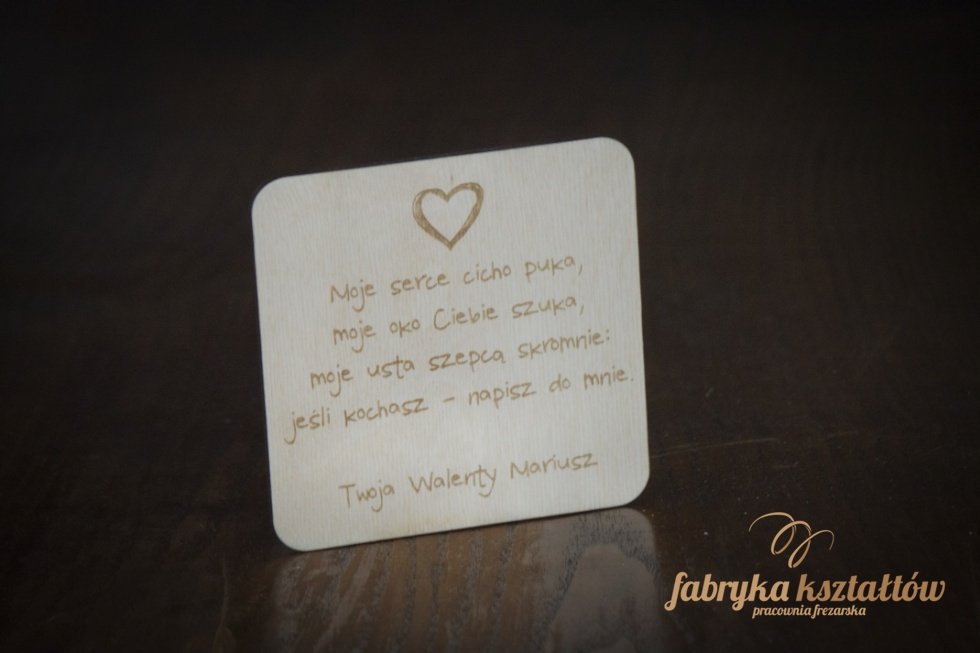 Moje serce cicho puka,
moje oko Ciebie szuka,
moje usta szepcą skromnie:
jeśli kochasz - napisz do mnie.
Twoja Walenty Mariusz
fabryka kształtów
pracownia frezarska